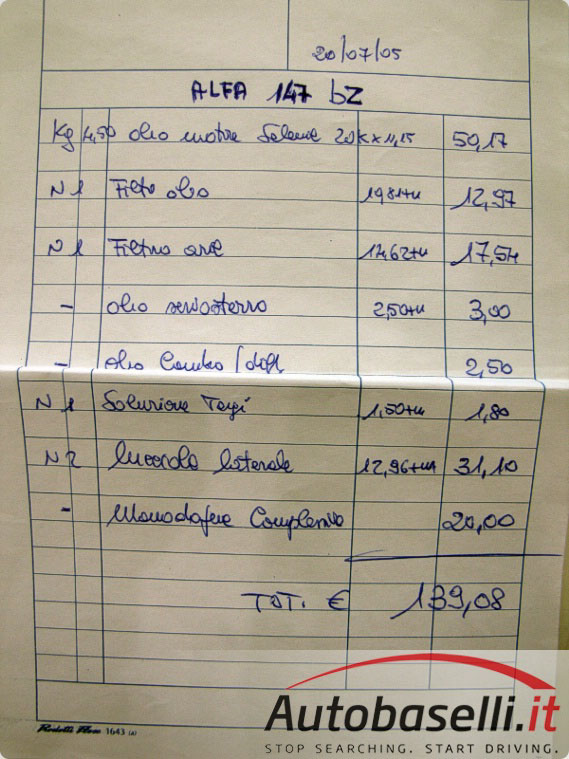 20/07/05
ALFA 147 bz
Kg 4,50 olio motore Selenia 20K x 11,15 50,17
N 1 Filtro olio 10,81+iva 12,97
N 1 Filtro aria 14,62+iva 17,54
- olio servosterzo 2,50+iva 3,00
- olio Cambio / diff 2,50
N 1 Soluzione Tergi 1,50+iva 1,80
N 2 laterale 12,96+iva 31,10
- Manodopera Complessiva 20,00
TOT. € 139,08
1643 (A)
Autobaselli.it
STOP SEARCHING. START DRIVING.